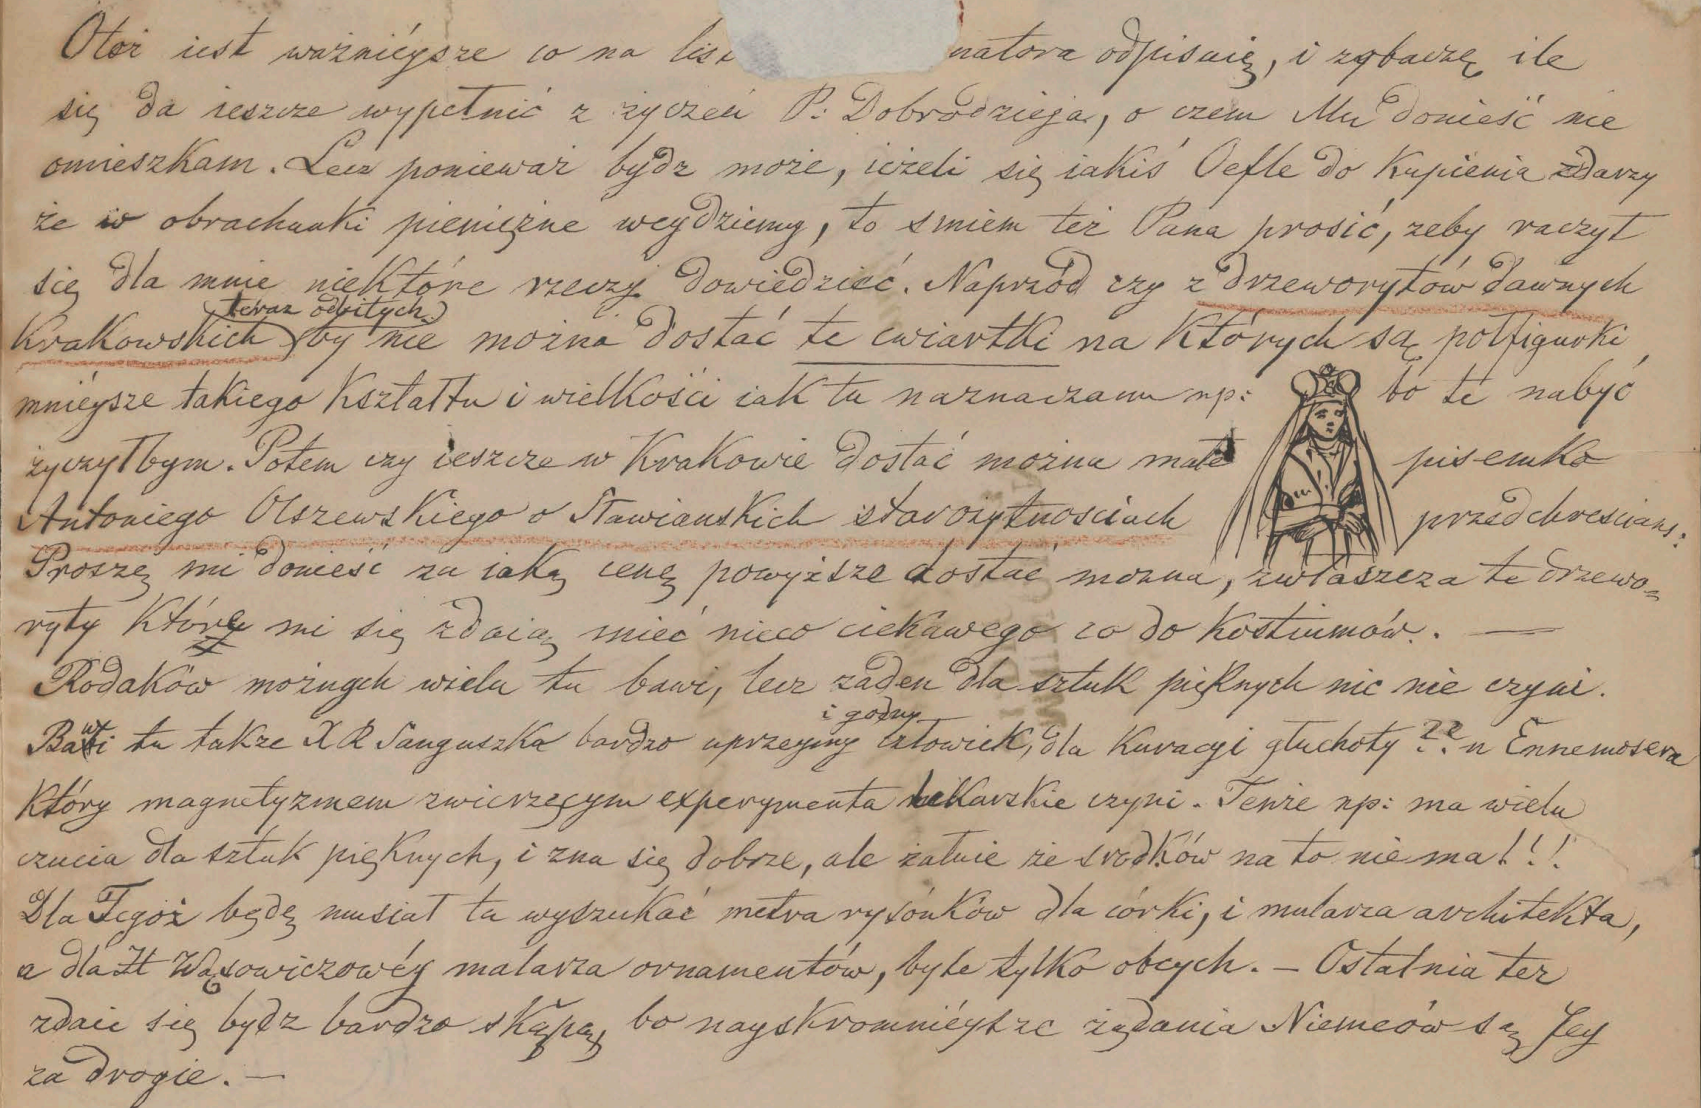 Otoż iest ważnieysze co na list natora odpisuię, i zobaczę ile
się da ieszcze wypełnić z życzeń P: Dobrodzieja, o czem Mu donieść nie
omieszkam. Lecz ponieważ bydz może, ieżeli się iakiś Oefle do kupienia zdarzy
że w obrachunki pieniężne weydziemy, to smiem też Pana prosić, żeby raczył
się dla mnie niektóre rzeczy dowiedzieć. Naprzód czy z drzeworytów dawnych
teraz odbitych
Krakowskich by nie można dostać te cwiartki na których są połfigurki
mnieysze takiego kształtu i wielkości iak tu naznaczam np: bo te nabyć
życzyłbym. Potem czy ieszcze w Krakowie dostać można małe pisemko
Antoniego Olszewskiego o Sławianskich starożytnosciach przedchrescians:
Proszę mi donieść za iaką cenę powyższe dostać można, zwłaszcza te drzewo-
ryty które mi się zdaią mieć nieco ciekawego co do kostiumów. —
Rodaków możnych wielu tu bawi, lecz żaden dla sztuk pięknych nic nie czyni.
i godny
Bawi tu także X R Sanguszko bardzo uprzeymy człowiek, dla kuracyi głuchoty ?? u Ennemosera
który magnetyzmem zwierzęcym experymenta lekarskie czyni. Tenże np: ma wielu
czucia dla sztuk pięknych, i zna się dobrze, ale żałuie że srodków na to nie ma!!!
Dla Tegoż będę musiał tu wyszukać metra rysónków dla córki, i malarza architekta,
a dla H Wąsowiczowéy malarza ornamentów, byle tylko obcych. – Ostatnia też
zdaie się bydz bardzo skąpą, bo nayskromnieysze żądania Niemców są Jey
za drogie. —